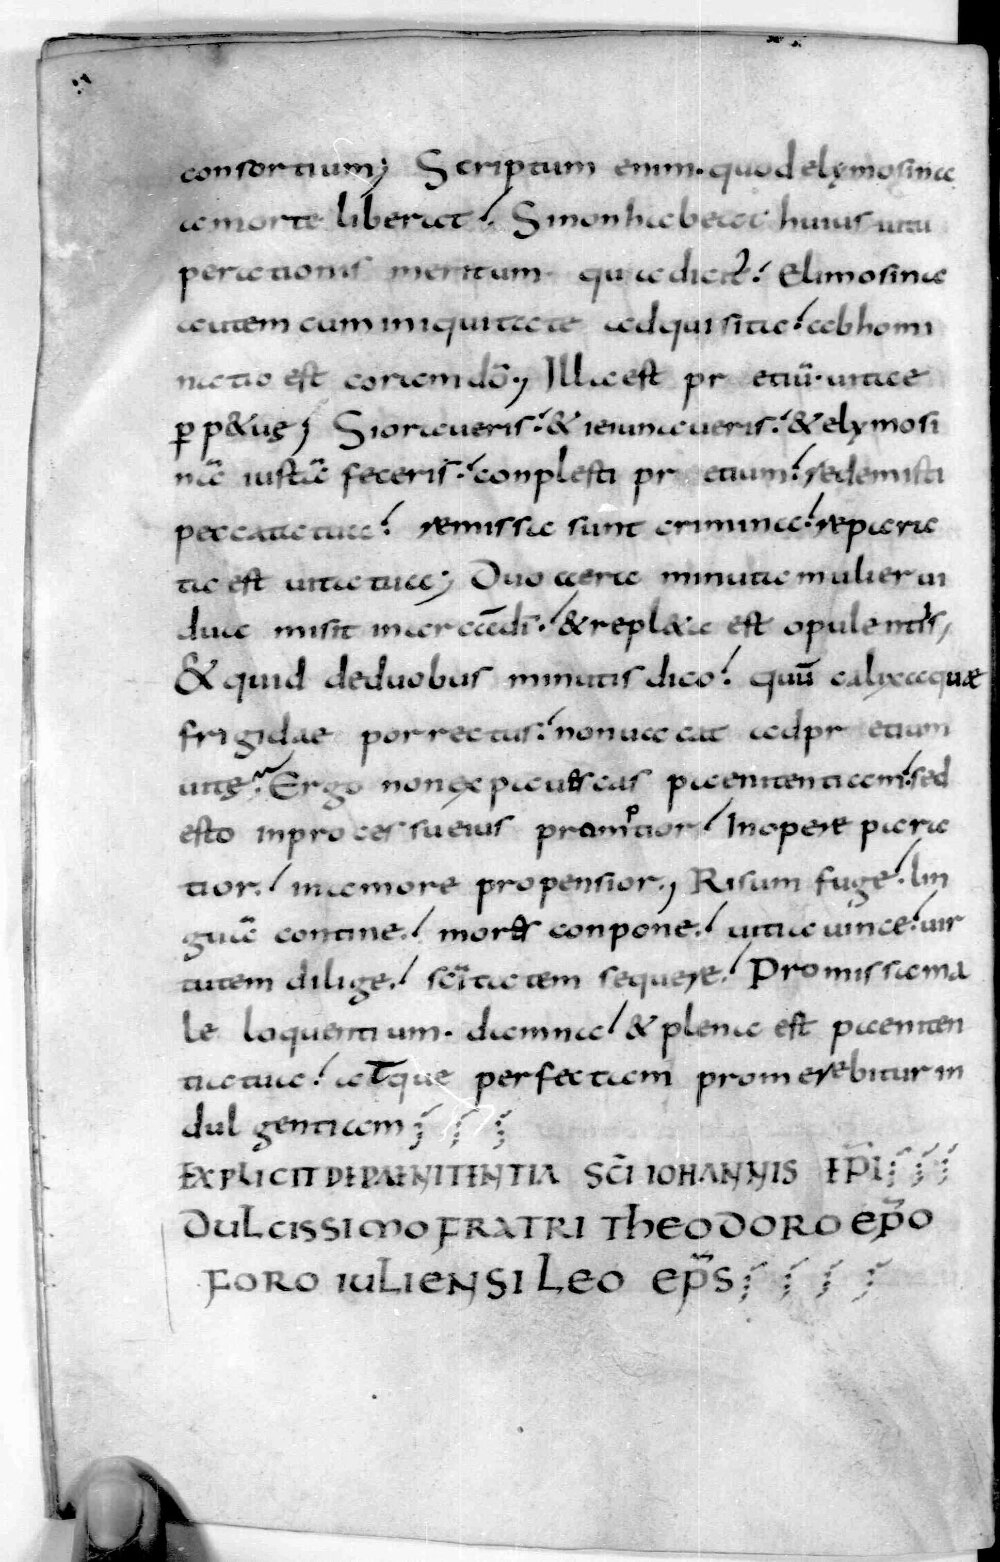 consortium; Scriptum enim. quod elymosina
a morte liberat. Si non habeat huius uitu
perationis meritum. quia dicit. Elimosina
autem cum iniquitate adquisita. ab homi
natio est coram dō; Illa est pretiū. uitae
ꝑpetuę; Si oraueris. & ieiunaueris. & elymosi
nā iustā feceris. conplesti praetium. redemisti
peccata tua. remissa sunt crimina. repara
ta est uita tua; Duo aera minuta mulier ui
dua misit in aercādī. & repl&a est opulentiis,
& quid de duobus minutis dico. quū calix aquae
frigidae porrectus. non uacat ad pretium
uitę. Ergo non expauescas paenitentiam. sed
esto in processu eius promptior. In opere para
tior. in amore propensior; Risum fuge. lin
guā contine. mores conpone. uitia uince. uir
tutem dilige. scītatem sequere. Promissa ma
le loquentium. damna. & plena est paeniten
tia tua. atque perfectam promerebitur in
dulgentiam
EXPLICIT DE PAENITENTIA SCĪ IOHANNIS EP̄I
DULCISSIMO FRATRI THEODORO EP̄O
FORO IULIENSI LEO EP̄S